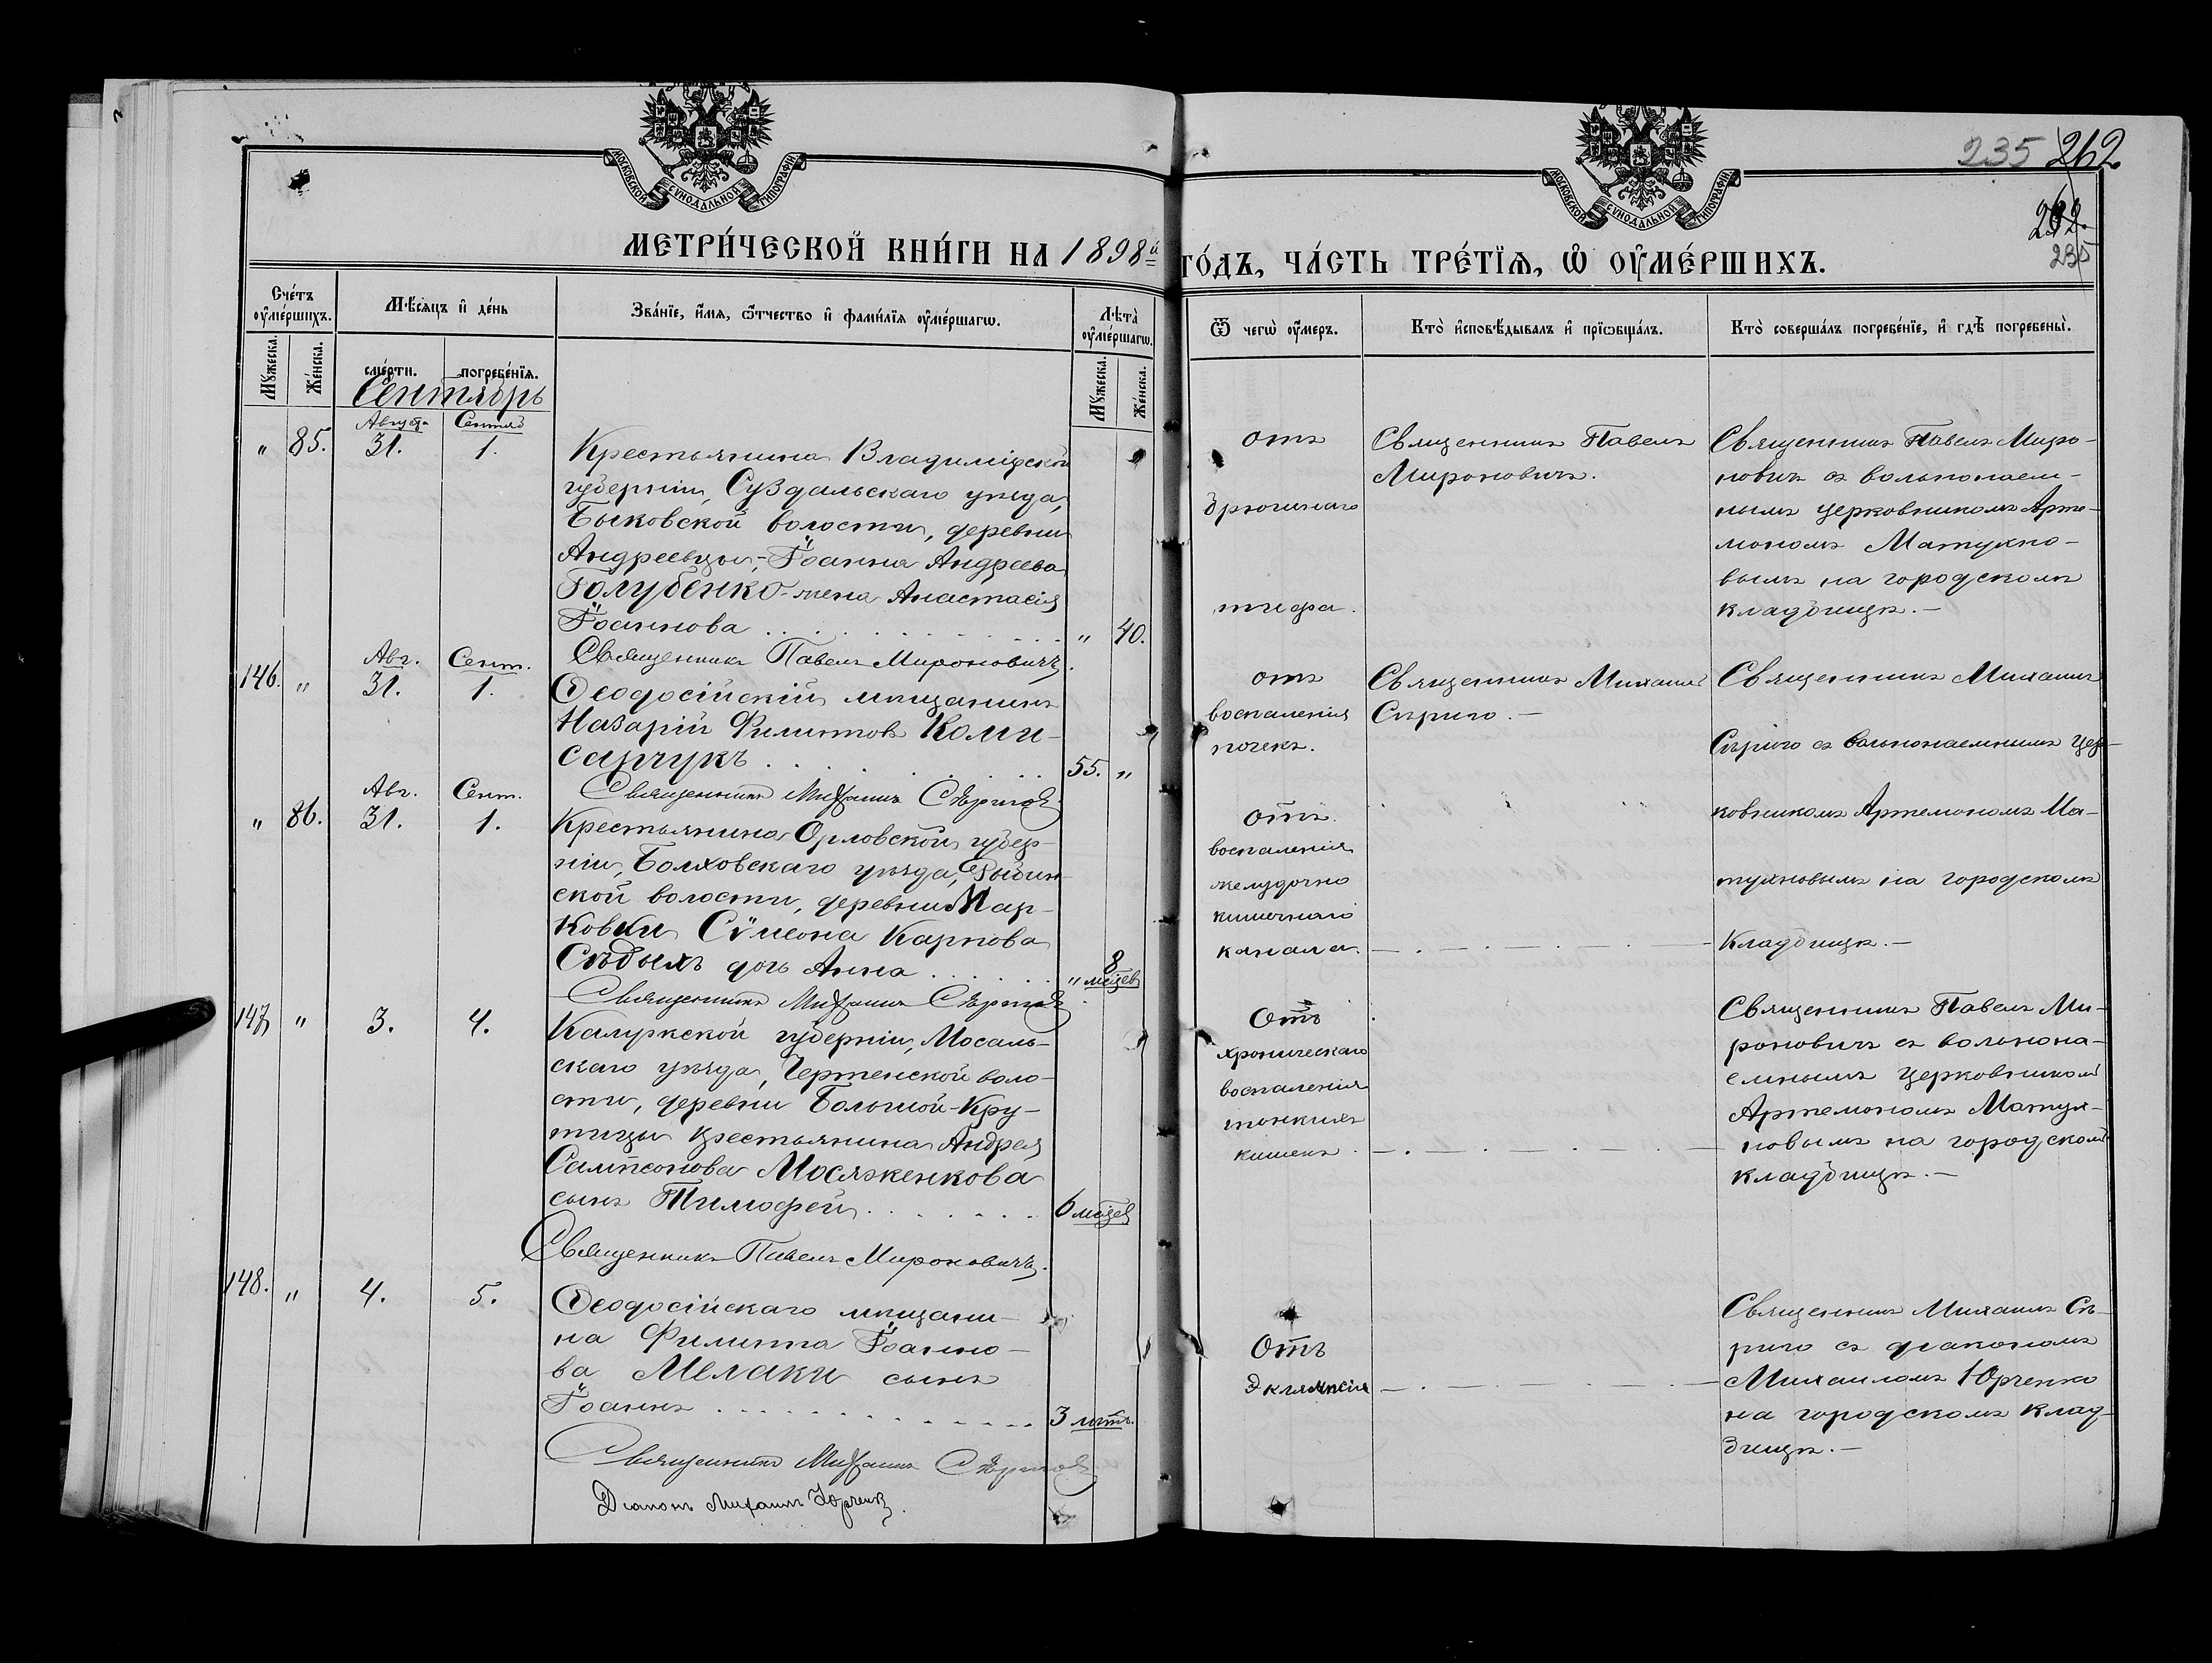 МОСКОВСКОЙ СѴНОДАЛЬНОЙ ТИПОГРАФІИ
МОСКОВСКОЙ СѴНОДАЛЬНОЙ ТИПОГРАФІИ
235 262.
262.
235
МЕТРИ́ЧЕСКОЙ КНИ́ГИ НА 1898й ГО́ДЪ, ЧА́СТЬ ТРЕ́ТЇѦ, Ѡ ОУ҆МЕ́РШИХЪ.
Сче́тъ оу҆ме́ршихъ.
Мꙋ́жеска.
Же́нска.
Мѣ́сѧцъ и҆ де́нь
сме́рти.
погребе́нїѧ.
Зва́нїе, и҆́мѧ, ѻ҆́тчество и҆ фами́лїѧ оу҆ме́ршагѡ.
Лѣ́та оу҆ме́ршагѡ.
Мꙋ́жеска.
Же́нска.
Ѿ чегѡ̀ оу҆́меръ.
Кто̀ и҆сповѣ́дывалъ и҆ прїѡбща́лъ.
Кто̀ соверша́лъ погребе́нїе, и҆ гдѣ̀ погребены̀.
Сентябрь
" 85.
Август. 31.
Сентяб. 1.
Крестьянина Владимірской
губерніи, Суздальскаго уѣзда,
Быковской волости, деревни
Андреевцы,- Іоанна Андреева
Голубенко - жена Анастасія
Іоаннова
" 40.
Священникъ Павелъ Мироновичъ.
отъ
брюшнаго
тифа.
Священникъ Павелъ
Мироновичъ.
Священникъ Павелъ Миро-
новичъ съ вольнонаем-
нымъ церковникомъ Арте-
мономъ Матухно-
вымъ на городскомъ
кладбищѣ.-
146. "
Авг. 31.
Сент. 1.
Ѳеодосійскій мѣщанинъ
Назарій Филиповъ Коми-
санчукъ
55. "
Священникъ Михаилъ Сѣриго
отъ
воспаленія
почекъ.
Священникъ Михаилъ
Сѣриго.-
Священникъ Михаилъ
Сѣриго съ вольнонаемнымъ цер-
ковникомъ Артемономъ Ма-
тухновымъ на городскомъ
Кладбищѣ.-
" 86.
Авг. 31.
Сент. 1.
Крестьянина Орловской губер-
ніи, Болховскаго уѣзда,
ской волости, деревни Мар-
ковки Сѵмеона Карпова
дочь Анна
" 8 мѣсцев
Священникъ Михаилъ Сѣриго
отъ
воспаленія
желудочно
кишечнаго
канала.
147. "
3.
4.
Калужской губерніи, Мосаль-
скаго уѣзда, Чертенской воло-
сти, деревни Большой-Кру-
тицы крестьянина Андрея
Сампсонова Мосяженкова
сынъ Тимофей
6 мѣсцев
Священникъ Павелъ Мироновичъ.
Отъ
хроническаго
воспаленія
тонкихъ
кишекъ.
Священникъ Павелъ Ми-
роновичъ съ вольнона-
емнымъ церковникомъ
Артемономъ Матух-
новымъ на городскомъ
кладбищѣ.-
148. "
4.
5.
Ѳеодосійскаго мѣщани-
на Филиппа Іоанно-
ва Мелаки сынъ
Іоаннъ
3 лѣтъ.
Священникъ Михаилъ Сѣриго
Діаконъ Михаилъ Юрченко.
Отъ
Эклямпсія
Священникъ Михаилъ Сѣ-
риго съ діакономъ
Михаиломъ Юрченко
на городскомъ клад-
бищѣ.-